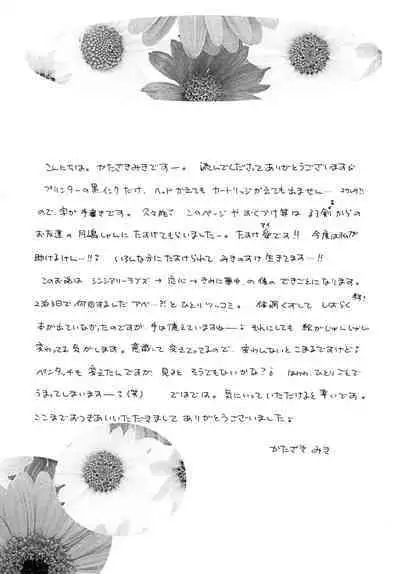 こんにちは。かたざきみきですー。読んでくださってありがとうございます
プリンターの黒インクだけ、ヘッドかえてもカートリッジかえても出ません…
ので、字が手書きです。このページやおくづけ等は
お友達の月嶋しゃんにたすけてもらいましたー。たすけ愛です!!今度は私が
助けまけん…!!いろんな方にたすけられてみきのすけ生きてます…!!
このお話はシンシアリーラブズ→恋に→きみに夢中の後のできごとになります。
2泊3日で何回しましたアベ…?!とひとりツッコミ。体調くずしてしばらく
本が出ていなかったのですが、手は憶えていますねー。それにしても絵がじゃんじゃん
変わってる気がします。意識して変えてってるので、変わんないとこまるですけど
ペンタッチも変えたんですが、見るとそうでもないかな?ひとりごとで
うまってしまいますー(笑)ではでは。気にいっていただけると幸いです。
ここまでおつきあいいただきましてありがとうございました
かたざき みき